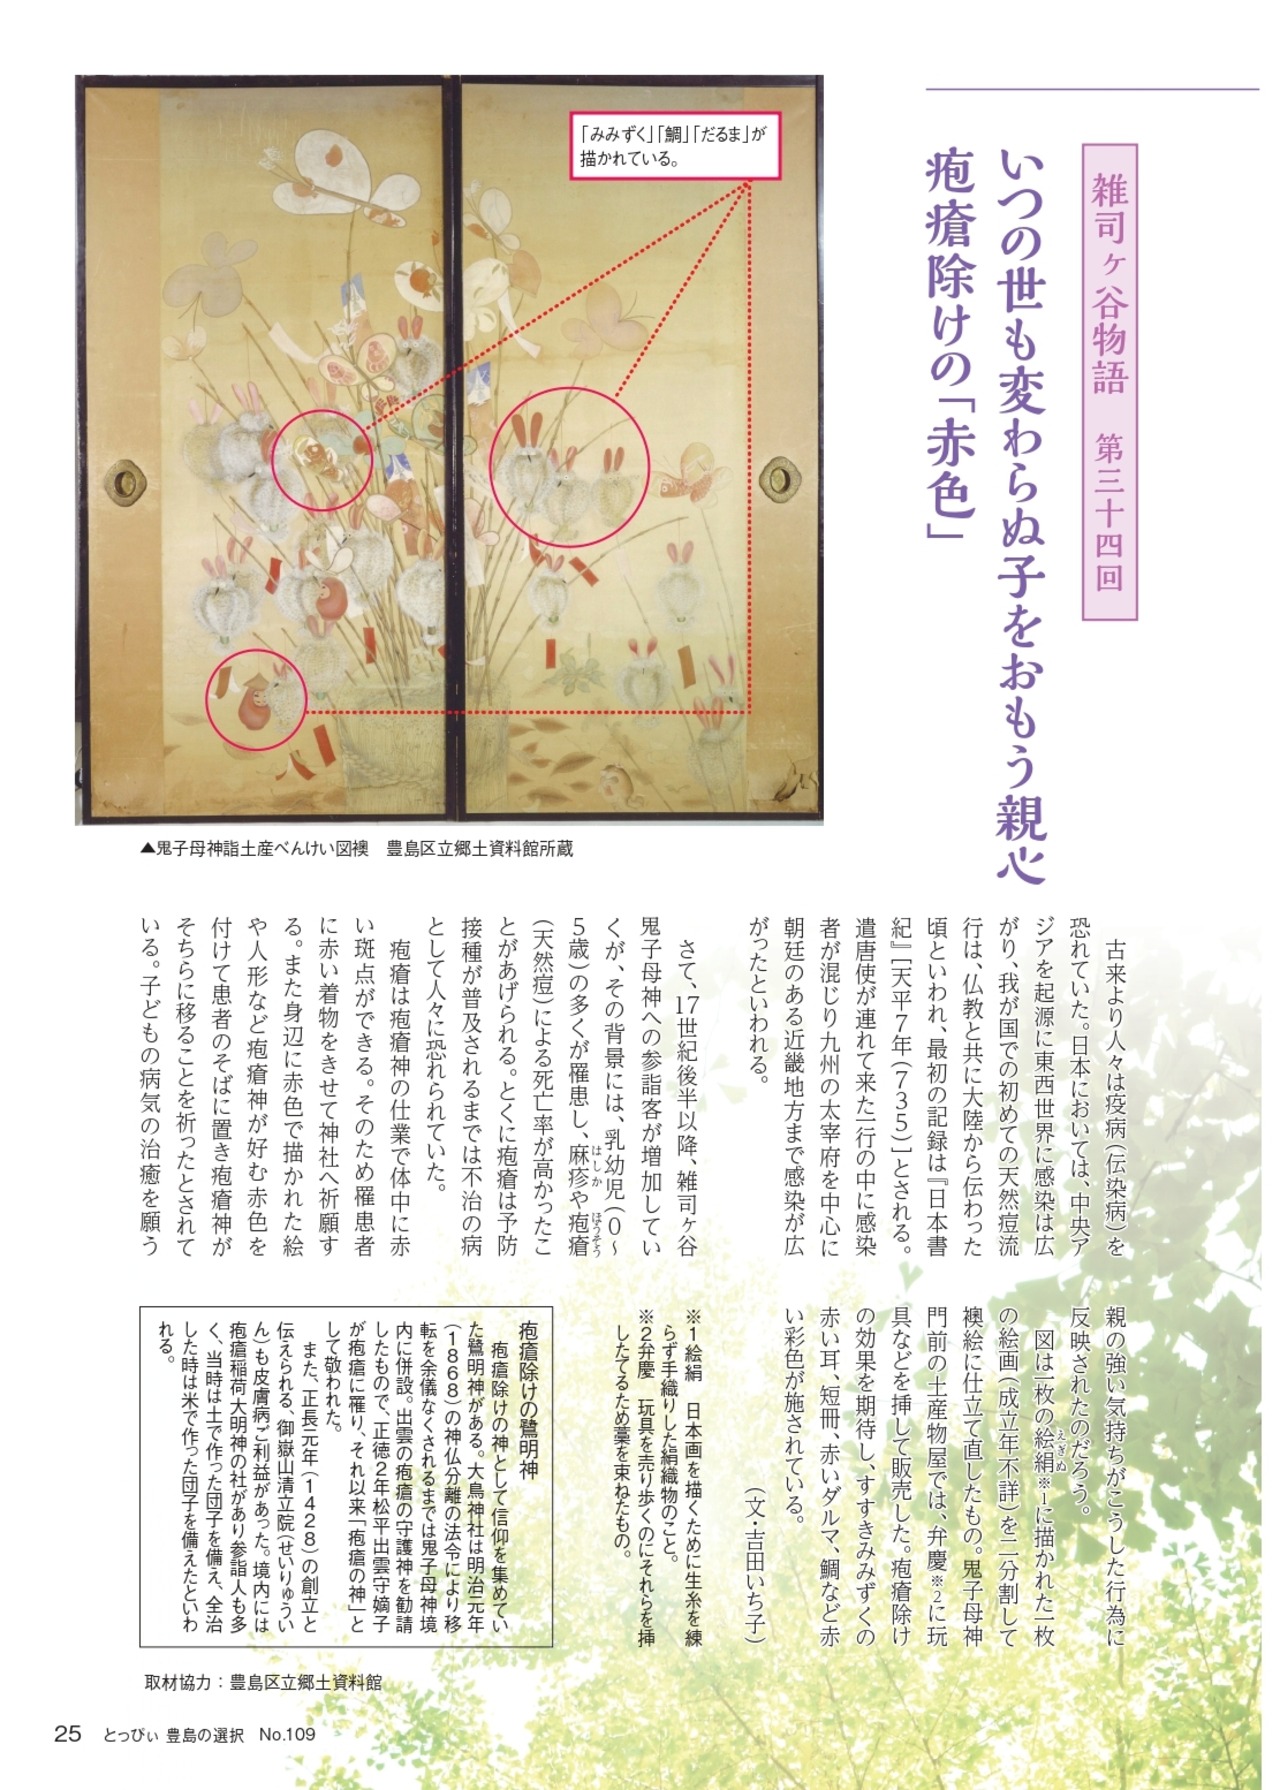 雑司ヶ谷物語　第三十四回
いつの世も変わらぬ子をおもう親心
疱瘡除けの「赤色」
「みみずく」「鯛」「だるま」が
描かれている。
▲鬼子母神詣土産べんけい図襖　豊島区立郷土資料館所蔵
古来より人々は疫病（伝染病）を
恐れていた。日本においては、中央ア
ジアを起源に東西世界に感染は広
がり、我が国での初めての天然痘流
行は、仏教と共に大陸から伝わった
頃といわれ、最初の記録は『日本書
紀』［天平７年（７３５）］とされる。
遣唐使が連れて来た一行の中に感染
者が混じり九州の太宰府を中心に
朝廷のある近畿地方まで感染が広
がったといわれる。
さて、17世紀後半以降、雑司ヶ谷
鬼子母神への参詣客が増加してい
くが、その背景には、乳幼児（０～
５歳）の多くが罹患し、麻疹や疱瘡
はしか
ほうそう
（天然痘）による死亡率が高かったこ
とがあげられる。とくに疱瘡は予防
接種が普及されるまでは不治の病
として人々に恐れられていた。
疱瘡は疱瘡神の仕業で体中に赤
い斑点ができる。そのため罹患者
に赤い着物をきせて神社へ祈願す
る。また身辺に赤色で描かれた絵
や人形など疱瘡神が好む赤色を
付けて患者のそばに置き疱瘡神が
そちらに移ることを祈ったとされて
いる。子どもの病気の治癒を願う
親の強い気持ちがこうした行為に
反映されたのだろう。
図は一枚の絵絹※1に描かれた一枚
えぎぬ
の絵画（成立年不詳）を二分割して
襖絵に仕立て直したもの。鬼子母神
門前の土産物屋では、弁慶※2に玩
具などを挿して販売した。疱瘡除け
の効果を期待し、すすきみみずくの
赤い耳、短冊、赤いダルマ、鯛など赤
い彩色が施されている。
（文・吉田いち子）
※１絵絹　日本画を描くために生糸を練
らず手織りした絹織物のこと。
※２弁慶　玩具を売り歩くのにそれらを挿
したてるため藁を束ねたもの。
疱瘡除けの鷺明神
疱瘡除けの神として信仰を集めてい
た鷺明神がある。大鳥神社は明治元年
（1868）の神仏分離の法令により移
転を余儀なくされるまでは鬼子母神境
内に併設。出雲の疱瘡の守護神を勧請
したもので、正徳２年松平出雲守嫡子
が疱瘡に罹り、それ以来「疱瘡の神」と
して敬われた。
また、正長元年（1428）の創立と
伝えられる、御嶽山清立院（せいりゅうい
ん）も皮膚病ご利益があった。境内には
疱瘡稲荷大明神の社があり参詣人も多
く、当時は土で作った団子を備え、全治
した時は米で作った団子を備えたといわ
れる。
取材協力：豊島区立郷土資料館
25　とっぴぃ 豊島の選択　No.109